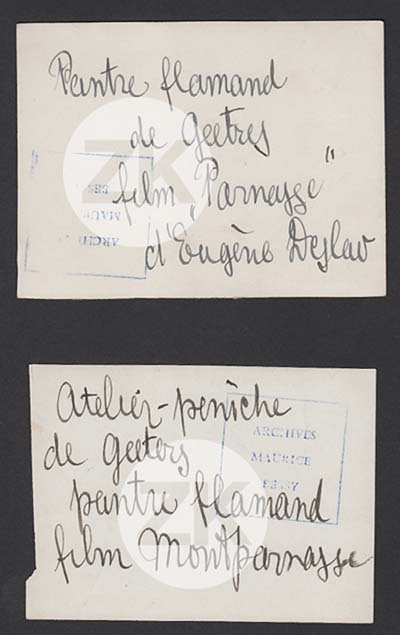 Peintre flamand
de Geetres
film "Parnasse"
d'Eugène Deslav
Atelier-peniche
de Geeters
peintre flamand
film Montparnasse
ARCHIVES
MAURICE
BESSY
ZK
ZK